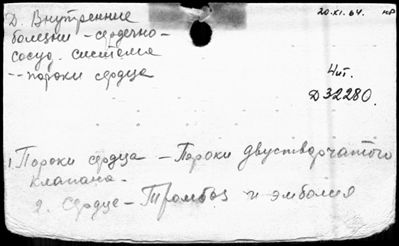 Д. Внутренние
болезни - сердечно-
сосуд. система
-- пороки сердца
20.XI.64. нр
Чит.
Д 32280.
1. Пороки сердца - Пороки двустворчатого
клапана.
2. Сердце - Тромбоз и эмболия